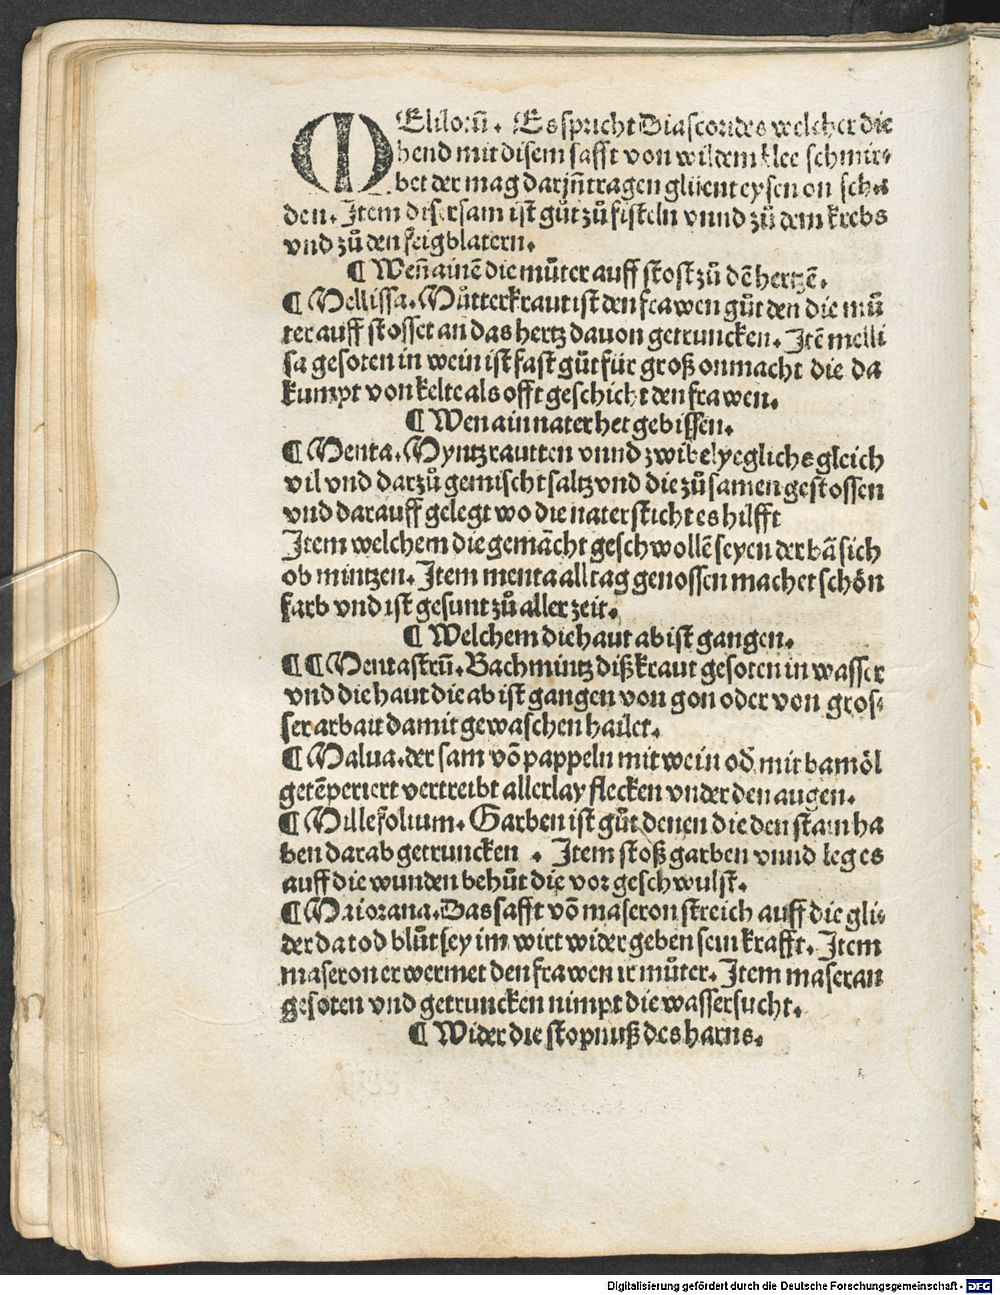 MElilotū. Es spricht Diascorides welcher die
hend mit disem safft von wildem klee schmir⸗
bet der mag darjn̄ tragen glüent eysen on scha
den. Item diser sam ist gůt zů fisteln vnnd zů dem krebs
vnd zů den feigblatern.
¶ Wen̄ ainē die můter auff stost zů dē hertzē.
¶ Mellissa. Můtterkraut ist den frawen gůt den die mů
ter auff stosset an das hertz dauon getruncken. Itē melli
sa gesoten in wein ist fast gůt für groß onmacht die da
kumpt von kelte als offt geschicht den frawen.
¶ Wen ain nater het gebissen.
¶ Menta. Myntz rautten vnnd zwibel yeglichs gleich
vil vnd darzů gemischt saltz vnd die zůsamen gestossen
vnd darauff gelegt wo die nater sticht es hilfft
Item welchem die gemācht geschwollē seyen der bā sich
ob mintzen. Item menta all tag genossen machet schön
farb vnd ist gesunt zů aller zeit.
¶ Welchem die haut ab ist gangen.
¶ ¶ Mentastrū. Bachmintz diß kraut gesoten in wasser
vnd die haut die ab ist gangen von gon oder von gros⸗
ser arbait damit gewaschen hailet.
¶ Malua. der sam vō pappeln mit wein od̓ mit bamöl
getēperiert vertreibt allerlay flecken vnder den augen.
¶ Millefolium. Garben ist gůt denen die den stain ha
ben darab getruncken . Item stoß garben vnnd leg es
auff die wunden behůt die vor geschwulst.
¶ Maiorana. Das safft vō maseron streich auff die gli⸗
der da tod blůt sey im wirt wider geben sein krafft. Item
maseron erwermet den frawen ir můter. Item maseran
gesoten vnd getruncken nimpt die wassersucht.
¶ Wider die stopnuß des harns.
Digitalisierung gefördert durch die Deutsche Forschungsgemeinschaft - DFG